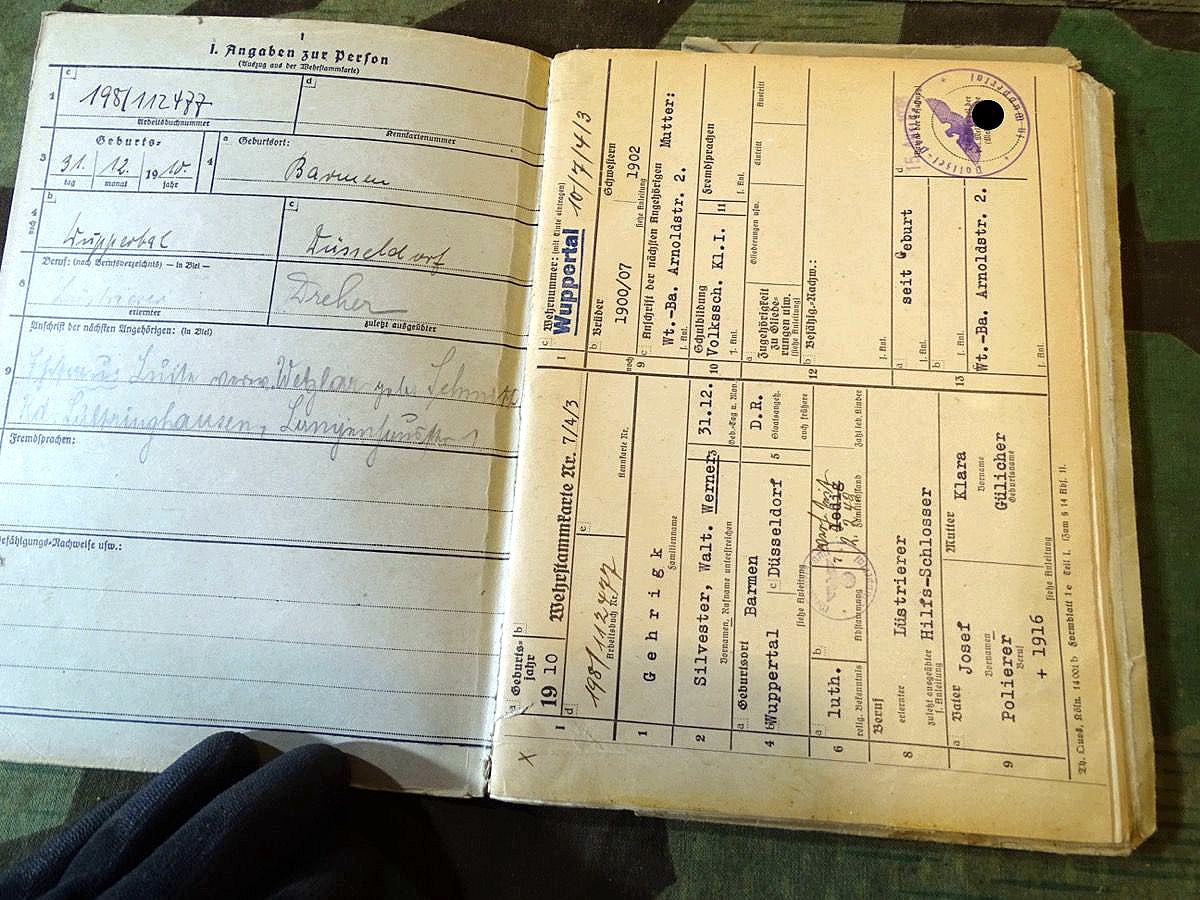 1
I. Angaben zur Person
(Auszug aus der Wehrstammkarte)
1
c
198/112477
Arbeitsbuchnummer
d
Kennkartennummer
3
Geburts-
31. 12. 1910.
tag monat jahr
4
a Geburtsort:
Barmen
b
Wuppertal
c
Düsseldorf
Beruf: (nach Berufsverzeichnis) — in Blei —
8
erlernter
Dreher
zuletzt ausgeübter
Anschrift der nächsten Angehörigen: (in Blei)
9
Luise Wetzlar geb. Schmitt
Fremdsprachen:
Befähigungs-Nachweise usw.:
a Geburts-
jahr
1910
b
Wehrstammkarte Nr. 7/4/3
c Wehrnummer: (mit Tinte eintragen)
Wuppertal 10/7/4/3
d
198/112477
Arbeitsbuch Nr.
e
Kennkarte Nr.
1
Gehrigk
Familienname
2
Silvester, Walt. Werner
Vornamen, Rufname unterstreichen
3
31.12.
Geb.-Tag u. Mon.
4
a Geburtsort
Barmen
b Wuppertal
c Düsseldorf
siehe Anleitung
5
D.R.
Staatsangeh.
auch frühere
6
a
luth.
relig. Bekenntnis
b
Abstammung
7
ledig
Familienstand
Zahl leb. Kinder
8
Beruf
erlernter
Lüstrierer
zuletzt ausgeübter
Hilfs-Schlosser
s. Anleitung
9
a Vater Josef
Vornamen
Polierer
Beruf
+ 1916
Mutter Klara
Vorname
Gülicher
Geburtsname
siehe Anleitung
b
Brüder
1900/07
Schwestern
1902
siehe Anleitung
noch
9
c
Anschrift der nächsten Angehörigen Mutter:
Wt.-Ba. Arnoldstr. 2.
s. Anl.
10
Schulbildung
Volkssch. Kl.I.
s. Anl.
11
Fremdsprachen
s. Anl.
12
a
Zugehörigkeit
zu Gliede-
rungen usw.
(siehe Anleitung)
Gliederungen usw.
Eintritt
Austritt
b
Befähig.-Nachw.:
s. Anl.
13
a
seit Geburt
s. Anl.
b
Wt.-Ba. Arnoldstr. 2.
s. Anl.
d
Th. Quos, Köln. 14001b Formblatt 1e Teil I. (Zum § 14 Abs. 1).